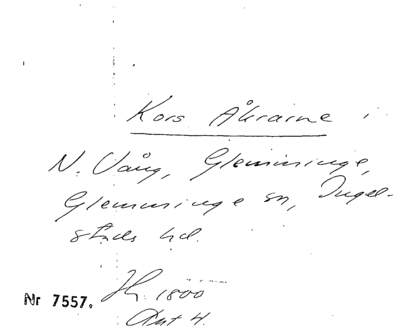 Kors Åkrarne i
N. Vång, Glemminge,
Glemminge sn, Ingel-
stads hd.
Nr 7557. 1800
Akt 4.